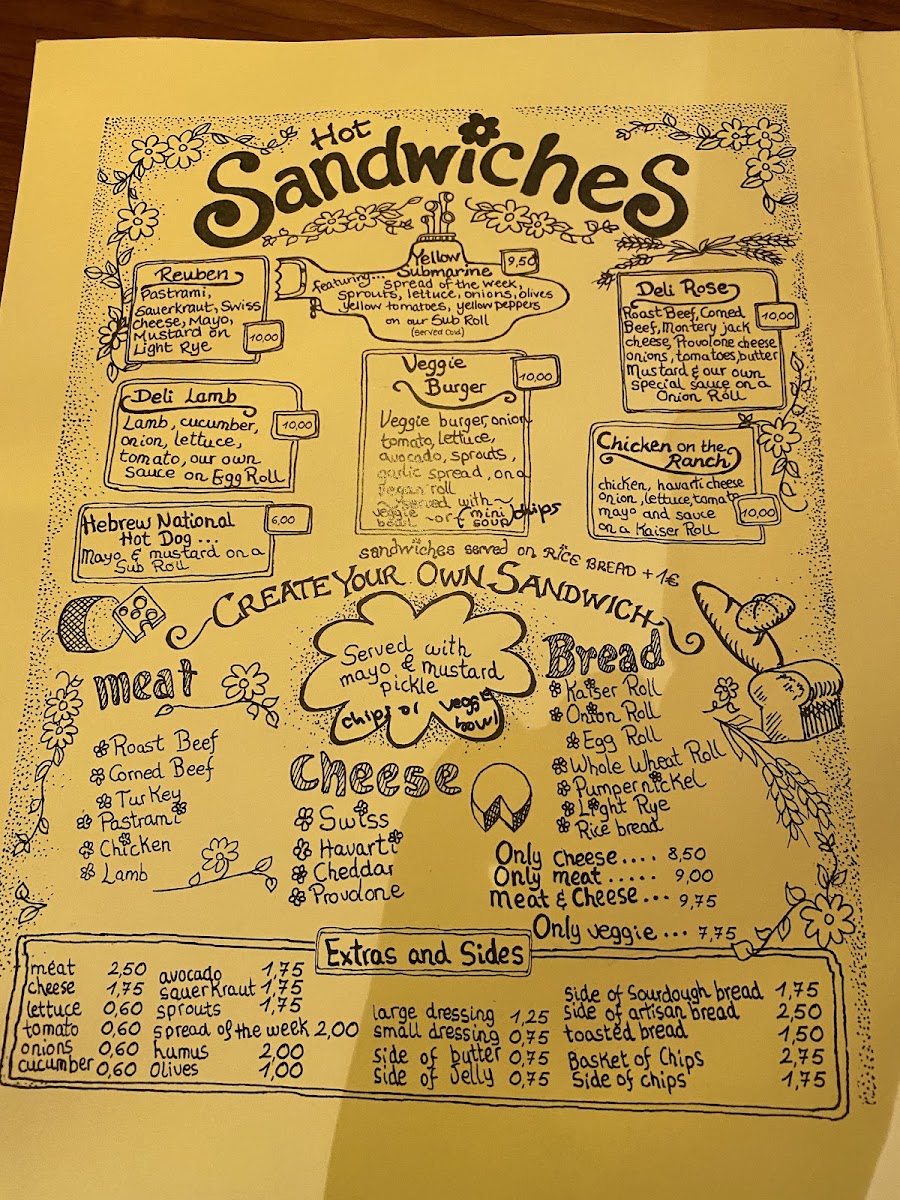 Hot
Sandwiches
Reuben
Pastrami,
Sauerkraut, Swiss
cheese, Mayo,
Mustard on
Light Rye
10,00
Yellow
Submarine
9,50
featuring... spread of the week,
sprouts, lettuce, onions, olives
yellow tomatoes, yellow peppers
on our Sub Roll
(served cold)
Deli Rose
Roast Beef, Corned
Beef, Montery jack
cheese, Provolone cheese
onions, tomatoes, butter
Mustard & our own
special sauce on a
Onion Roll
10,00
Deli Lamb
Lamb, cucumber,
onion, lettuce,
tomato, our own
sauce on Egg Roll
10,00
Veggie
Burger
10,00
Veggie burger, onion
tomato, lettuce,
avocado, sprouts,
garlic spread, on a
vegan roll
served with~
veggie bowl ~or~ mini soup chips
Chicken on the
Ranch
chicken, havarti cheese
onion, lettuce, tomato
mayo and sauce
on a Kaiser Roll
10,00
Hebrew National
Hot Dog ...
Mayo & mustard on a
Sub Roll
6,00
sandwiches served on RICE BREAD +1€
CREATE YOUR OWN SANDWICH
Served with
mayo & mustard
pickle
chips or veggie
bowl
meat
Roast Beef
Corned Beef
Turkey
Pastrami
Chicken
Lamb
Cheese
Swiss
Havarti
Cheddar
Provolone
Bread
Kaiser Roll
Onion Roll
Egg Roll
Whole Wheat Roll
Pumpernickel
Light Rye
Rice bread
Only Cheese.... 8,50
Only meat ..... 9,00
Meat & Cheese... 9,75
Only veggie ... 7,75
Extras and Sides
meat 2,50
cheese 1,75
lettuce 0,60
tomato 0,60
onions 0,60
cucumber 0,60
avocado 1,75
sauerkraut 1,75
sprouts 1,75
spread of the week 2,00
humus 2,00
olives 1,00
large dressing 1,25
small dressing 0,75
side of butter 0,75
side of Jelly 0,75
side of Sourdough bread 1,75
side of artisan bread 2,50
toasted bread 1,50
Basket of Chips 2,75
Side of chips 1,75